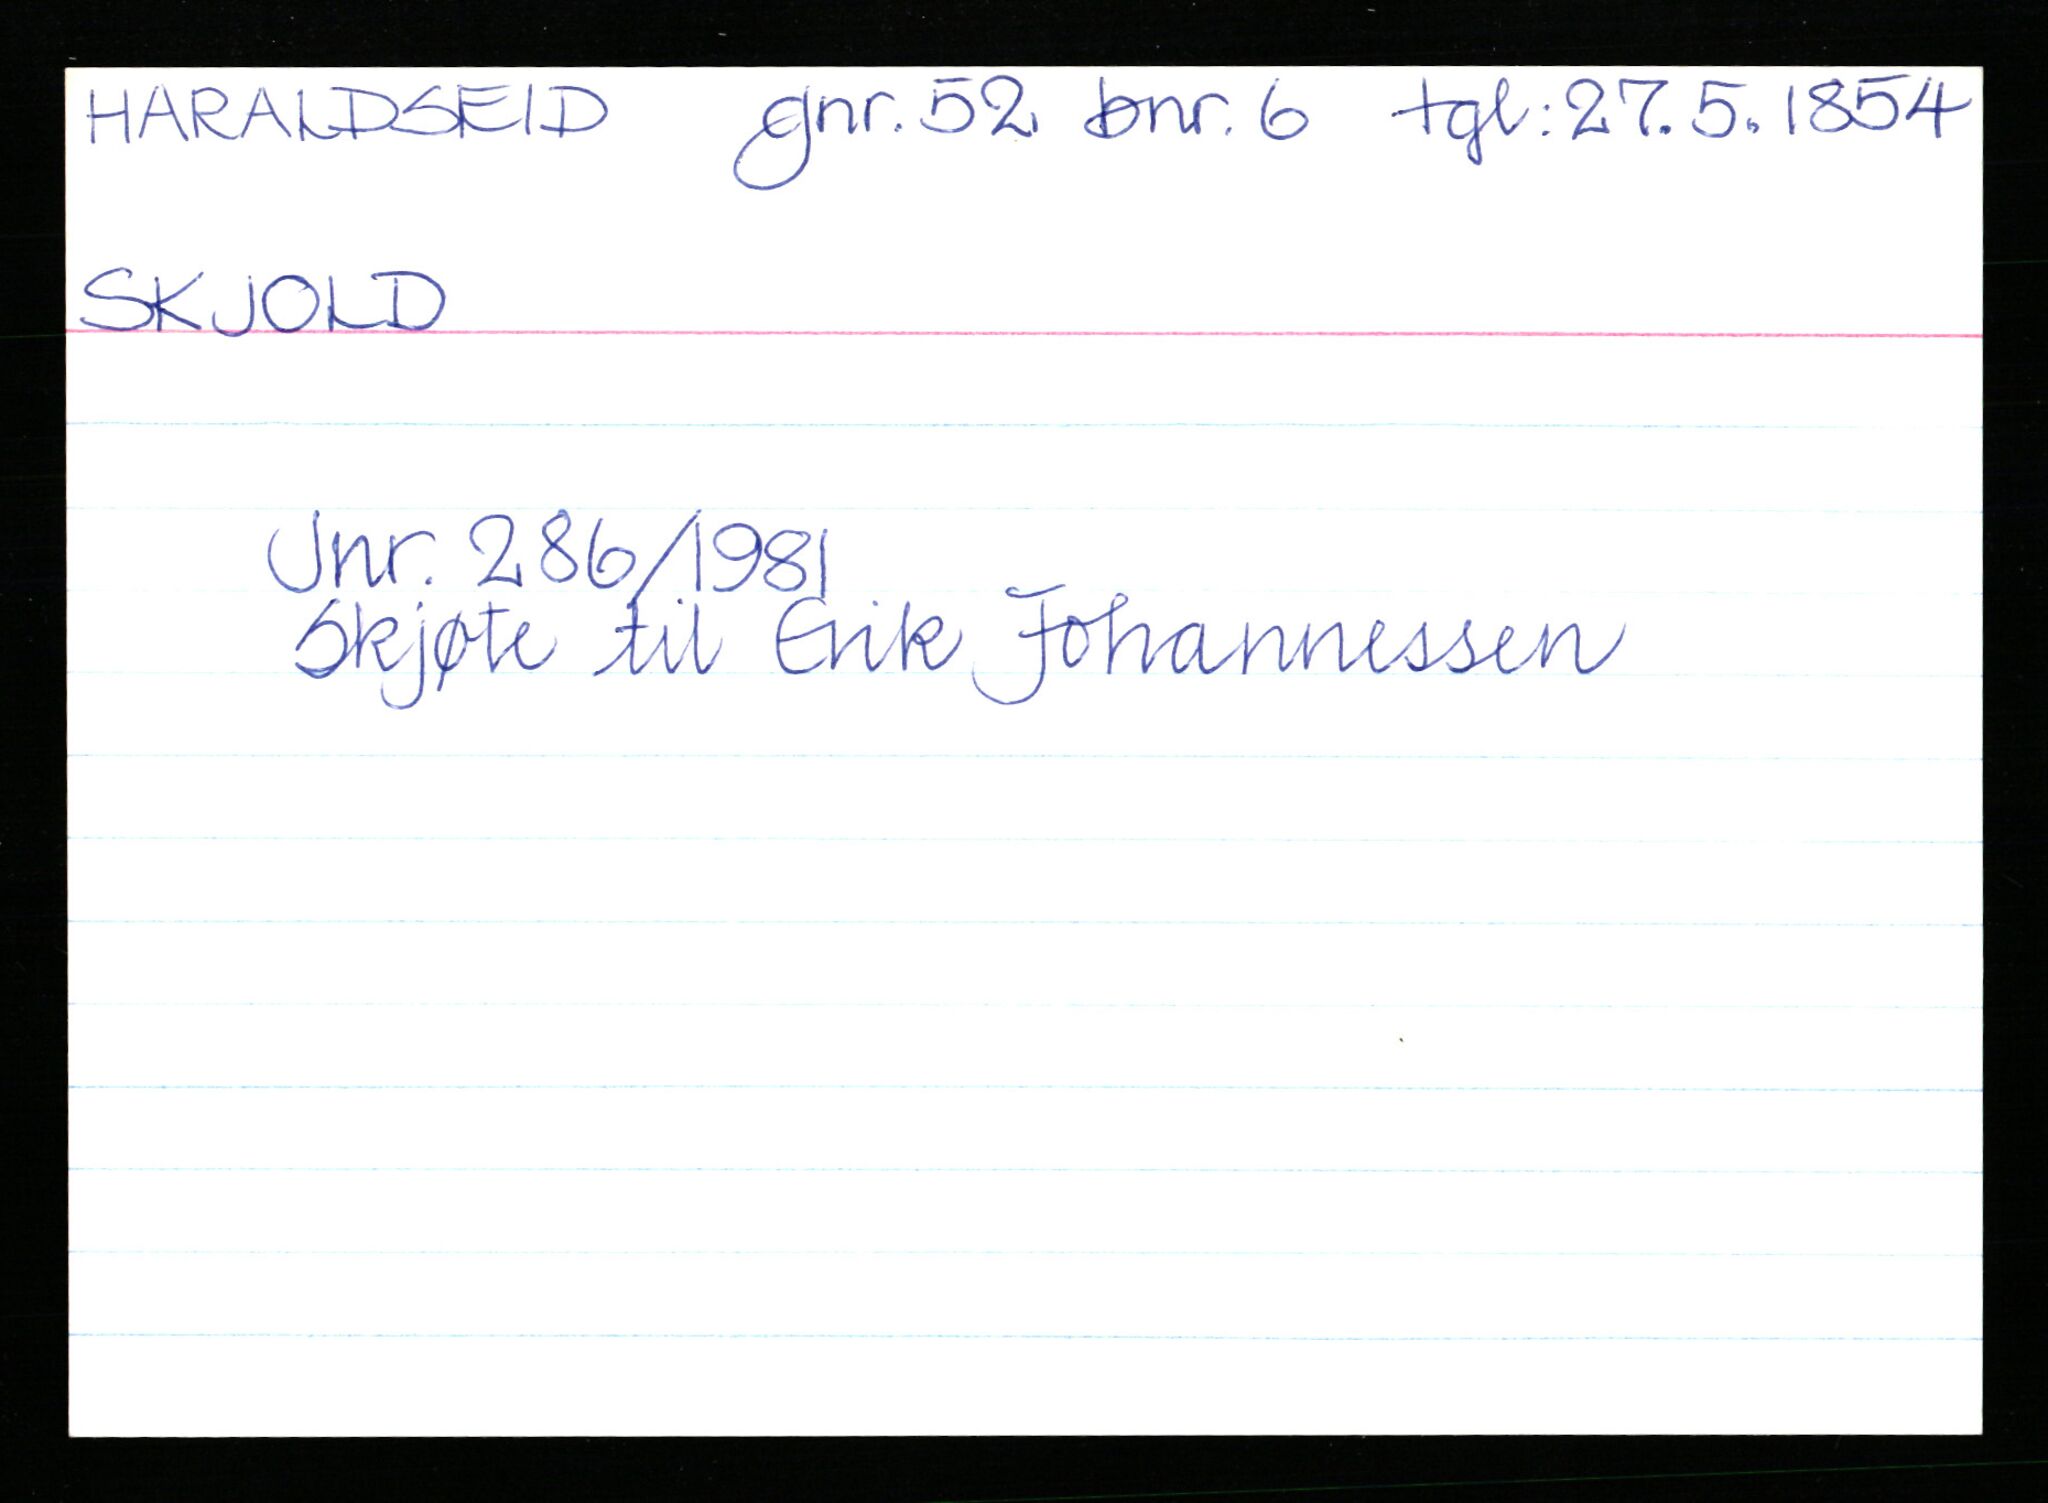 HARALDSEID gnr. 52 bnr. 6 tgl: 27. 5. 1854
SKJOLD
Jnr. 286/1981
Skjøte til Erik Johannessen